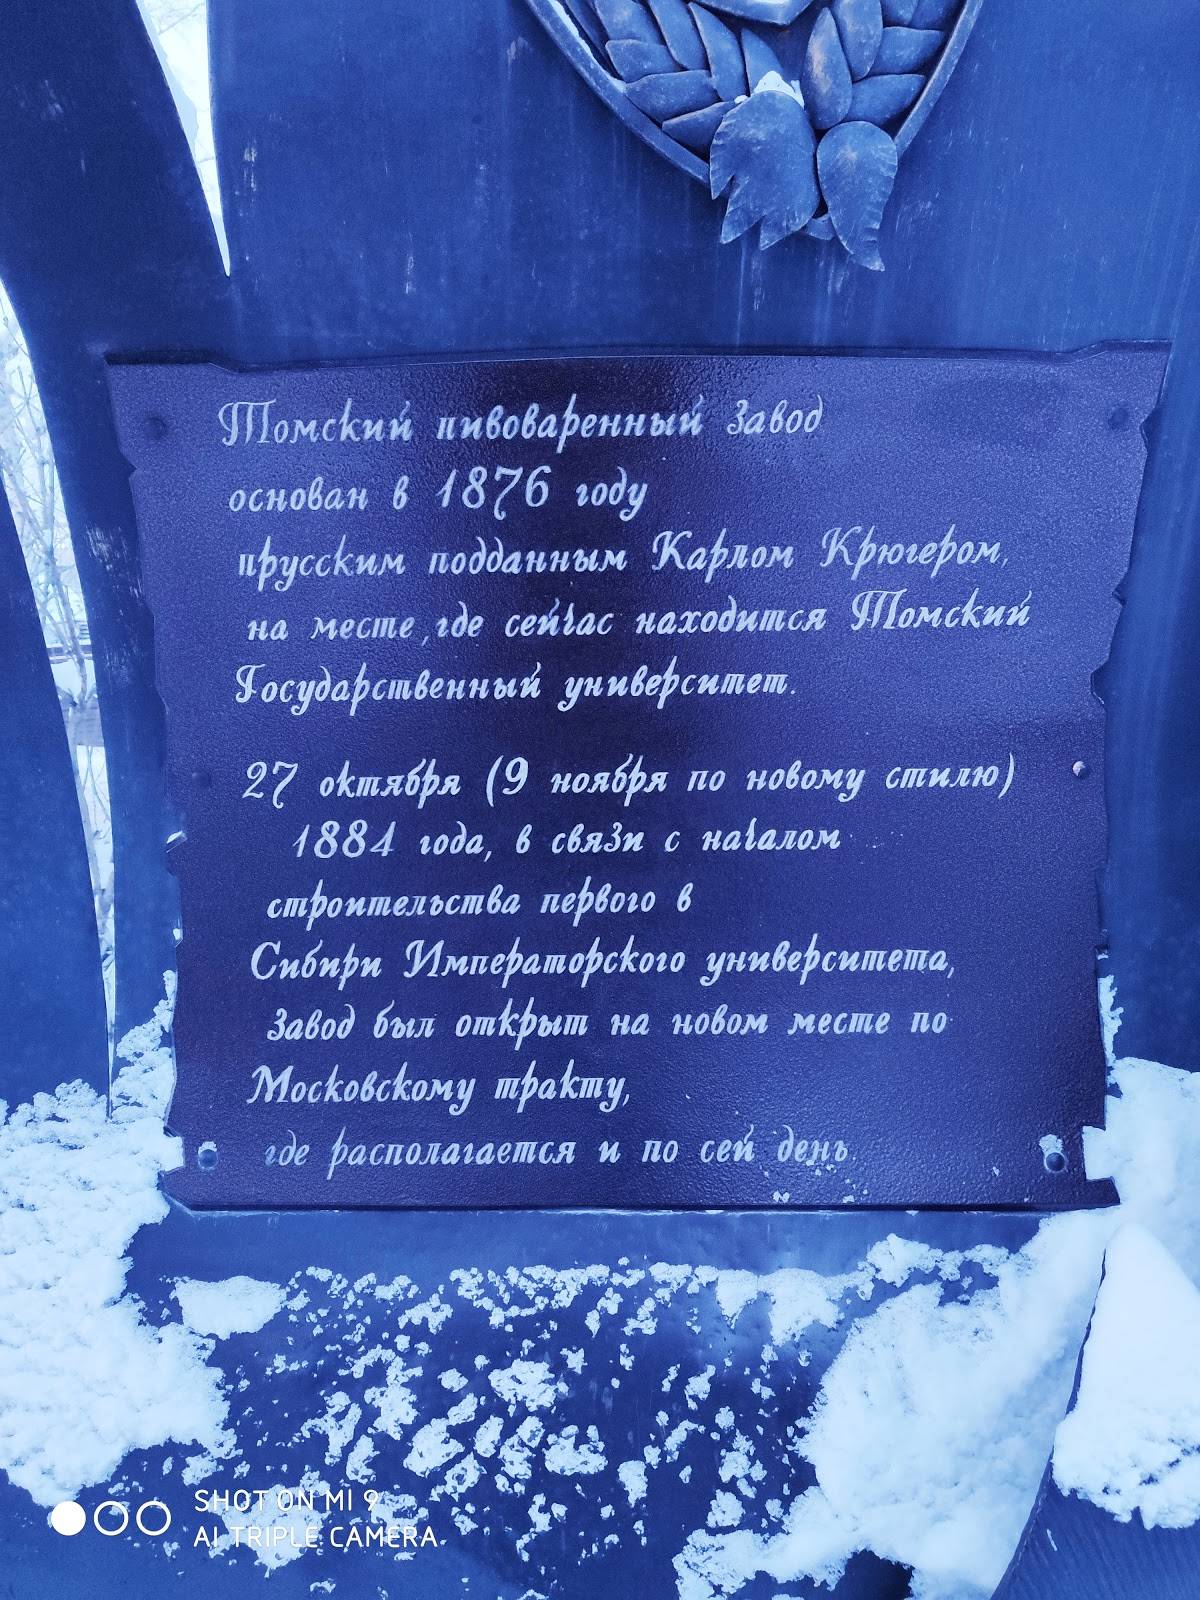 Томский пивоваренный завод
основан в 1876 году
прусским подданным Карлом Крюгером,
на месте, где сейчас находится Томский
Государственный университет.
27 октября (9 ноября по новому стилю)
1884 года, в связи с началом
строительства первого в
Сибири Императорского университета,
завод был открыт на новом месте по
Московскому тракту,
где располагается и по сей день
SHOT ON MI 9
AI TRIPLE CAMERA